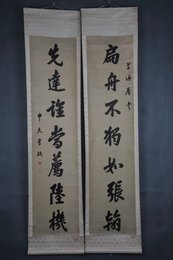 扁舟不獨如張翰
先達誰當薦陸機